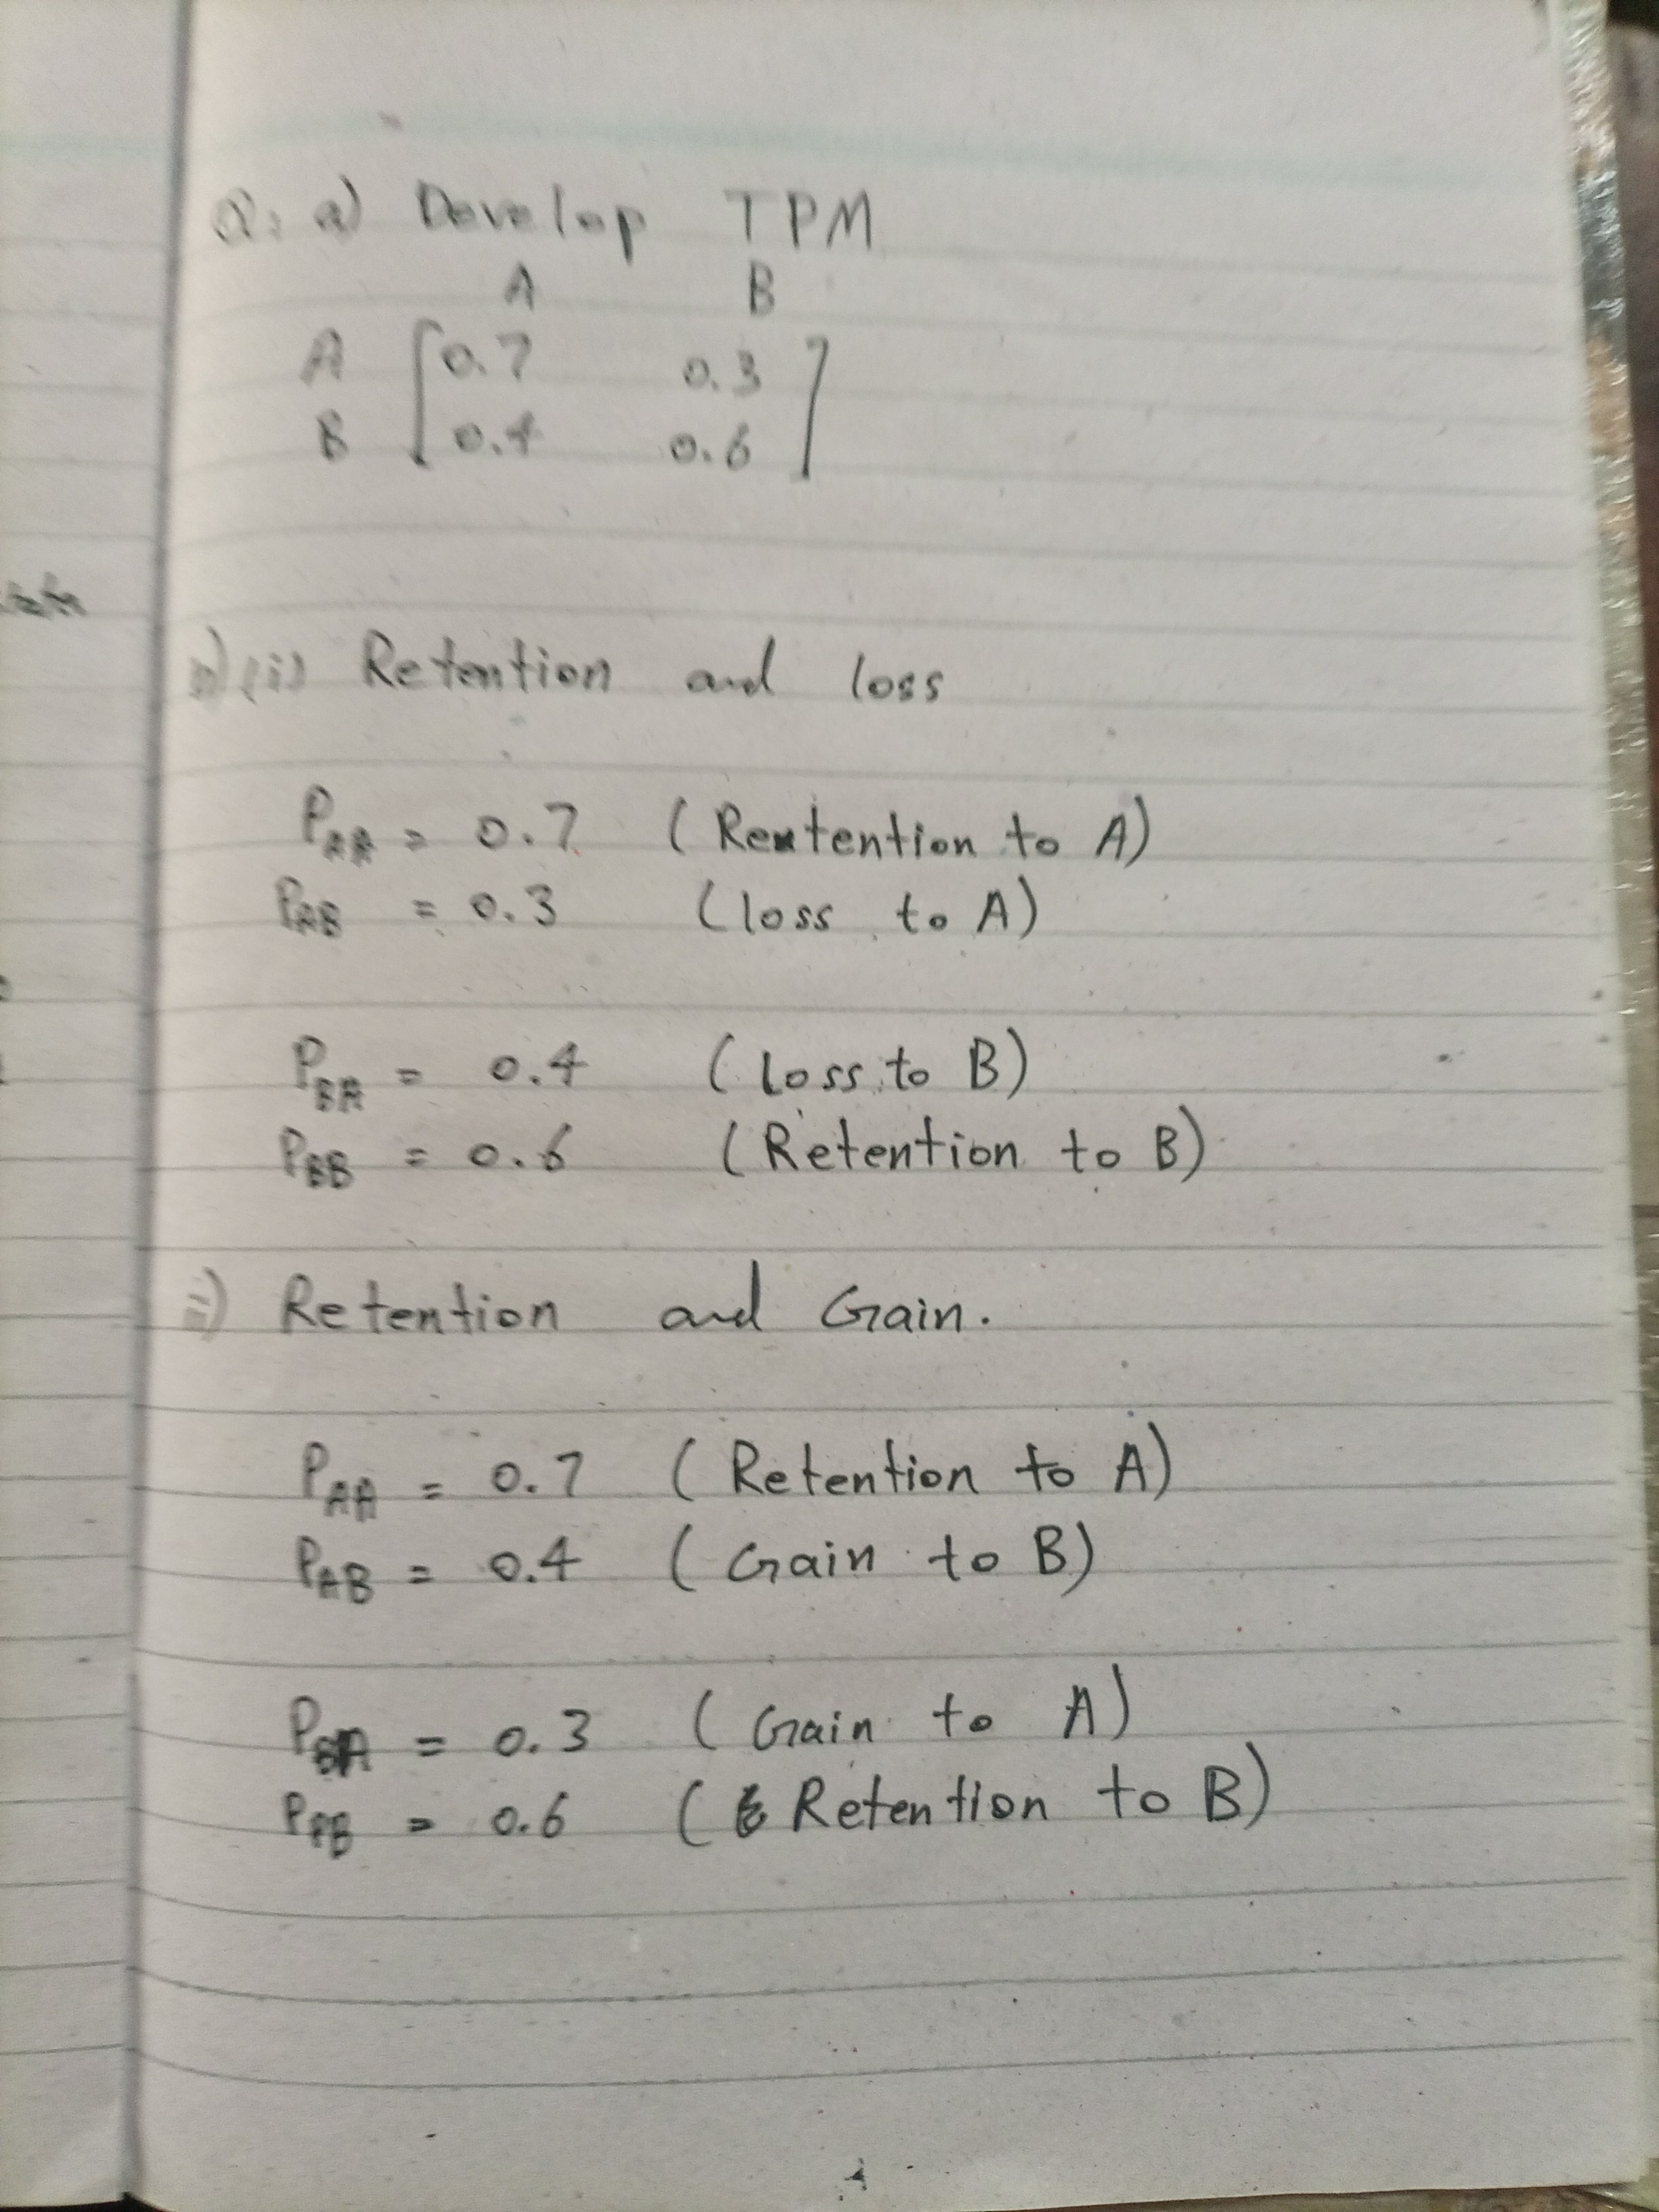 Q: a) Develop TPM
A B
A [0.7 0.3]
B [0.4 0.6]
(i) Retention and loss
PAA = 0.7 (Rentention to A)
PAB = 0.3 (loss to A)
PBA = 0.4 (Loss to B)
PBB = 0.6 (Retention to B)
=) Retention and Gain.
PAA = 0.7 (Retention to A)
PAB = 0.4 (Gain to B)
PBA = 0.3 (Gain to A)
PBB = 0.6 (Retention to B)